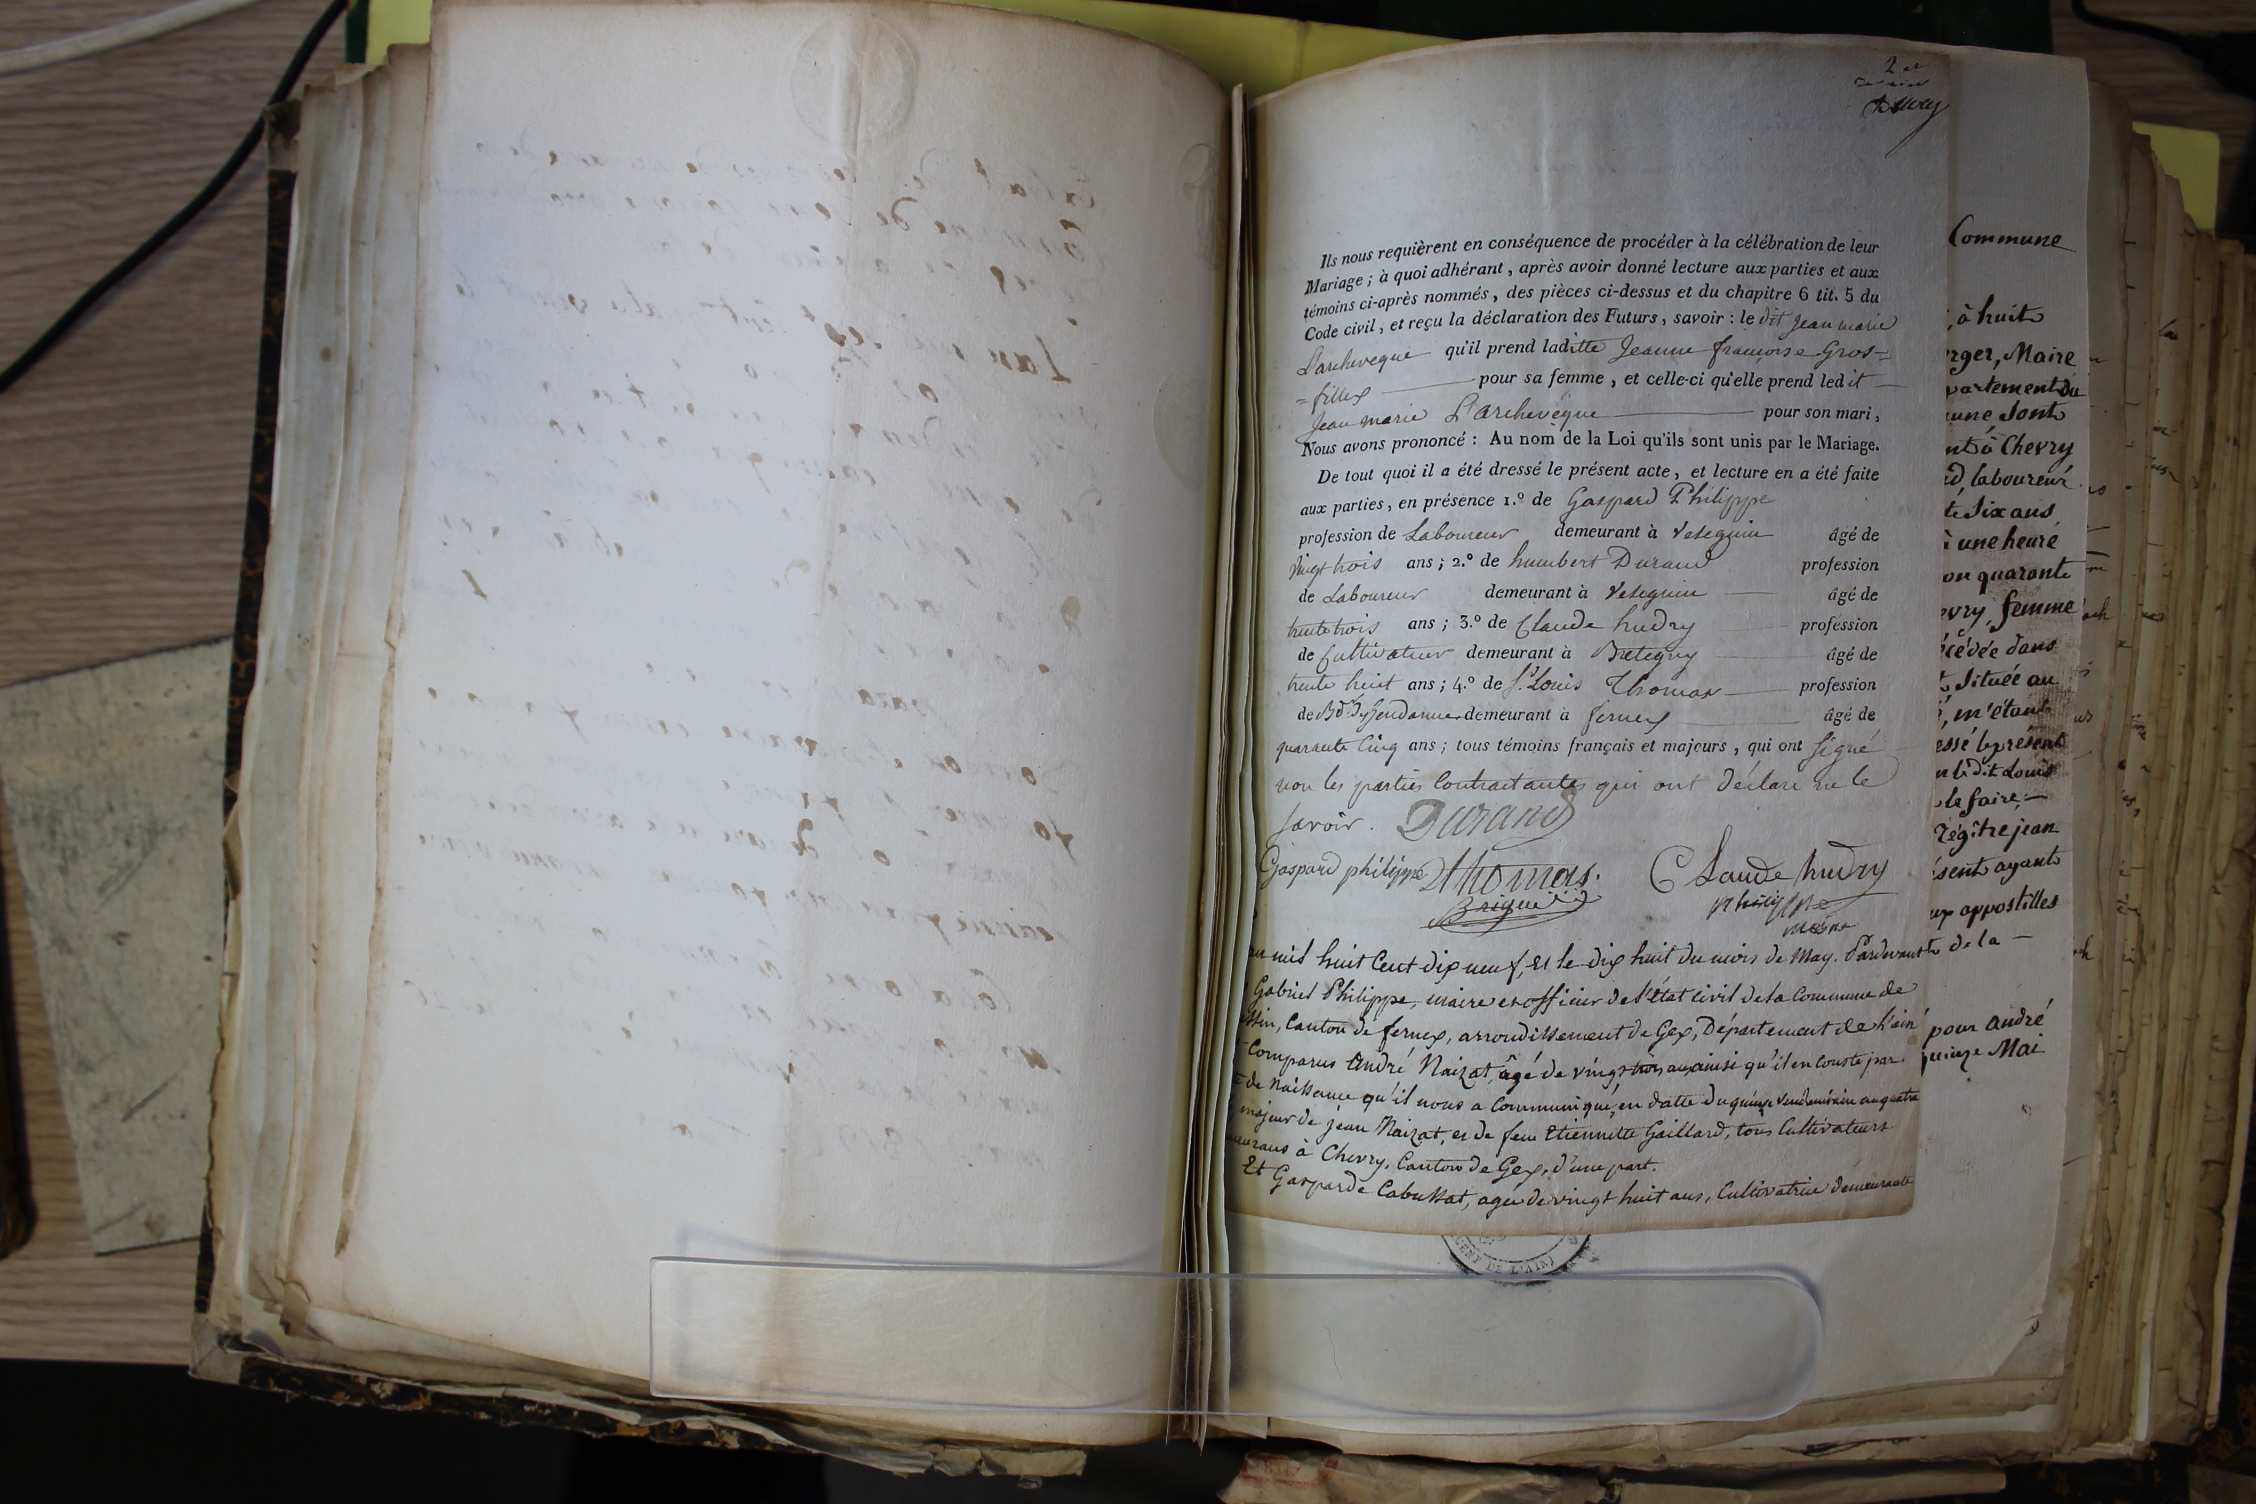 2 et
Hudry
Ils nous requièrent en conséquence de procéder à la célébration de leur
Mariage ; à quoi adhérant , après avoir donné lecture aux parties et aux
témoins ci-après nommés , des pièces ci-dessus et du chapitre 6 tit. 5 du
Code civil , et reçu la déclaration des Futurs , savoir : le dit Jean marie
Larcheveque qu'il prend laditte Jeanne françoise Gros=
=fillex pour sa femme , et celle-ci qu'elle prend ledit
Jean marie L'archevêque pour son mari ,
Nous avons prononcé : Au nom de la Loi qu'ils sont unis par le Mariage.
De tout quoi il a été dressé le présent acte , et lecture en a été faite
aux parties , en présence 1.º de Gaspard Philippe
profession de Laboureur demeurant à Veseguin âgé de
vingt trois ans ; 2.º de humbert Durand profession
de Laboureur demeurant à Veseguin âgé de
trente trois ans ; 3.º de Claude hudry profession
de Cultivateur demeurant à Bretegny âgé de
trente huit ans ; 4.º de Sr. Louis Thomas profession
de Gendarme demeurant à fernex âgé de
quarante Cinq ans ; tous témoins français et majeurs , qui ont Signé
non les parties Contractantes qui ont déclaré ne le
Savoir. Durand
Gaspard philippe thomas. Claude hudry
Brigdier philippe
maire
an mil huit Cent dix neuf, et le dix huit du mois de May. Pardevant
Gabriel Philippe, maire et officier de l'état civil de la Commune de
ssin, Canton de fernex, arrondissement de Gex, Département de l'ain
Comparus André Naizat, âgé de vingt trois ans, ainsi qu'il en conste par
de Naissance qu'il nous a Communiqué, en datte du quinze Vendemiaire an quatre
majeur de jean Naizat, et de feue Etiennette Gaillard, tous Cultivateurs
meurans à Chevry, Canton de Gex, d'une part.
Et Gasparde Cabussat, agée de vingt huit ans, Cultivatrice demeurante
Commune
, à huit
rger, Maire
partement du
une sont
nt à Chevry
d, laboureur
te Six ans
à une heure
on quarante
evry, femme
écédée dans
t, Située au
, m'étant
essé le présent
n le dit Louis
le faire,
régître jean
ésent ayant
ux appostilles
de la
pour André
quinze Mai
DE L'AIN